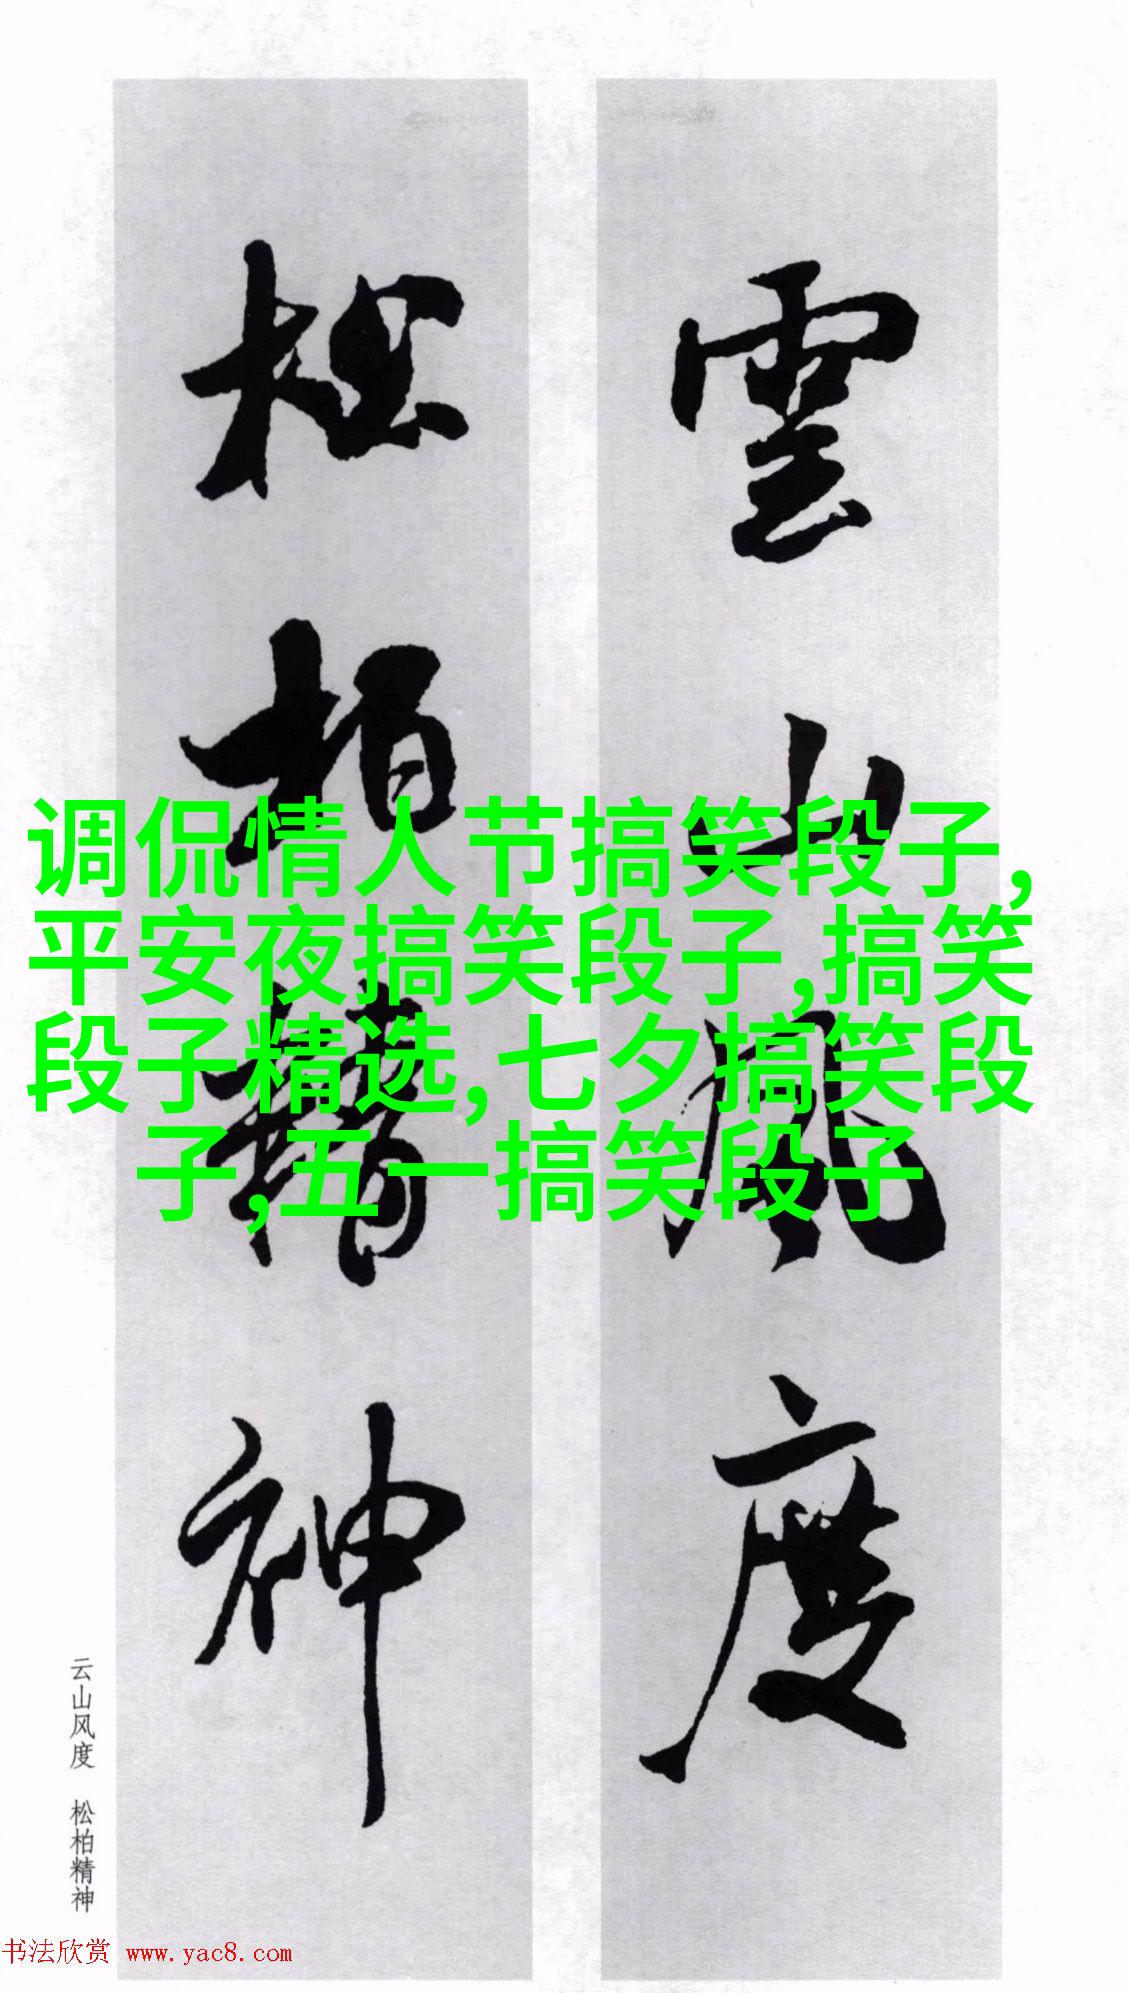 雲山風度
松柏精神
调侃情人节搞笑段子,
平安夜搞笑段子,搞笑
段子精选,七夕搞笑段
子,五一搞笑段子
云山风度 松柏精神
书法欣赏 www.yac8.com